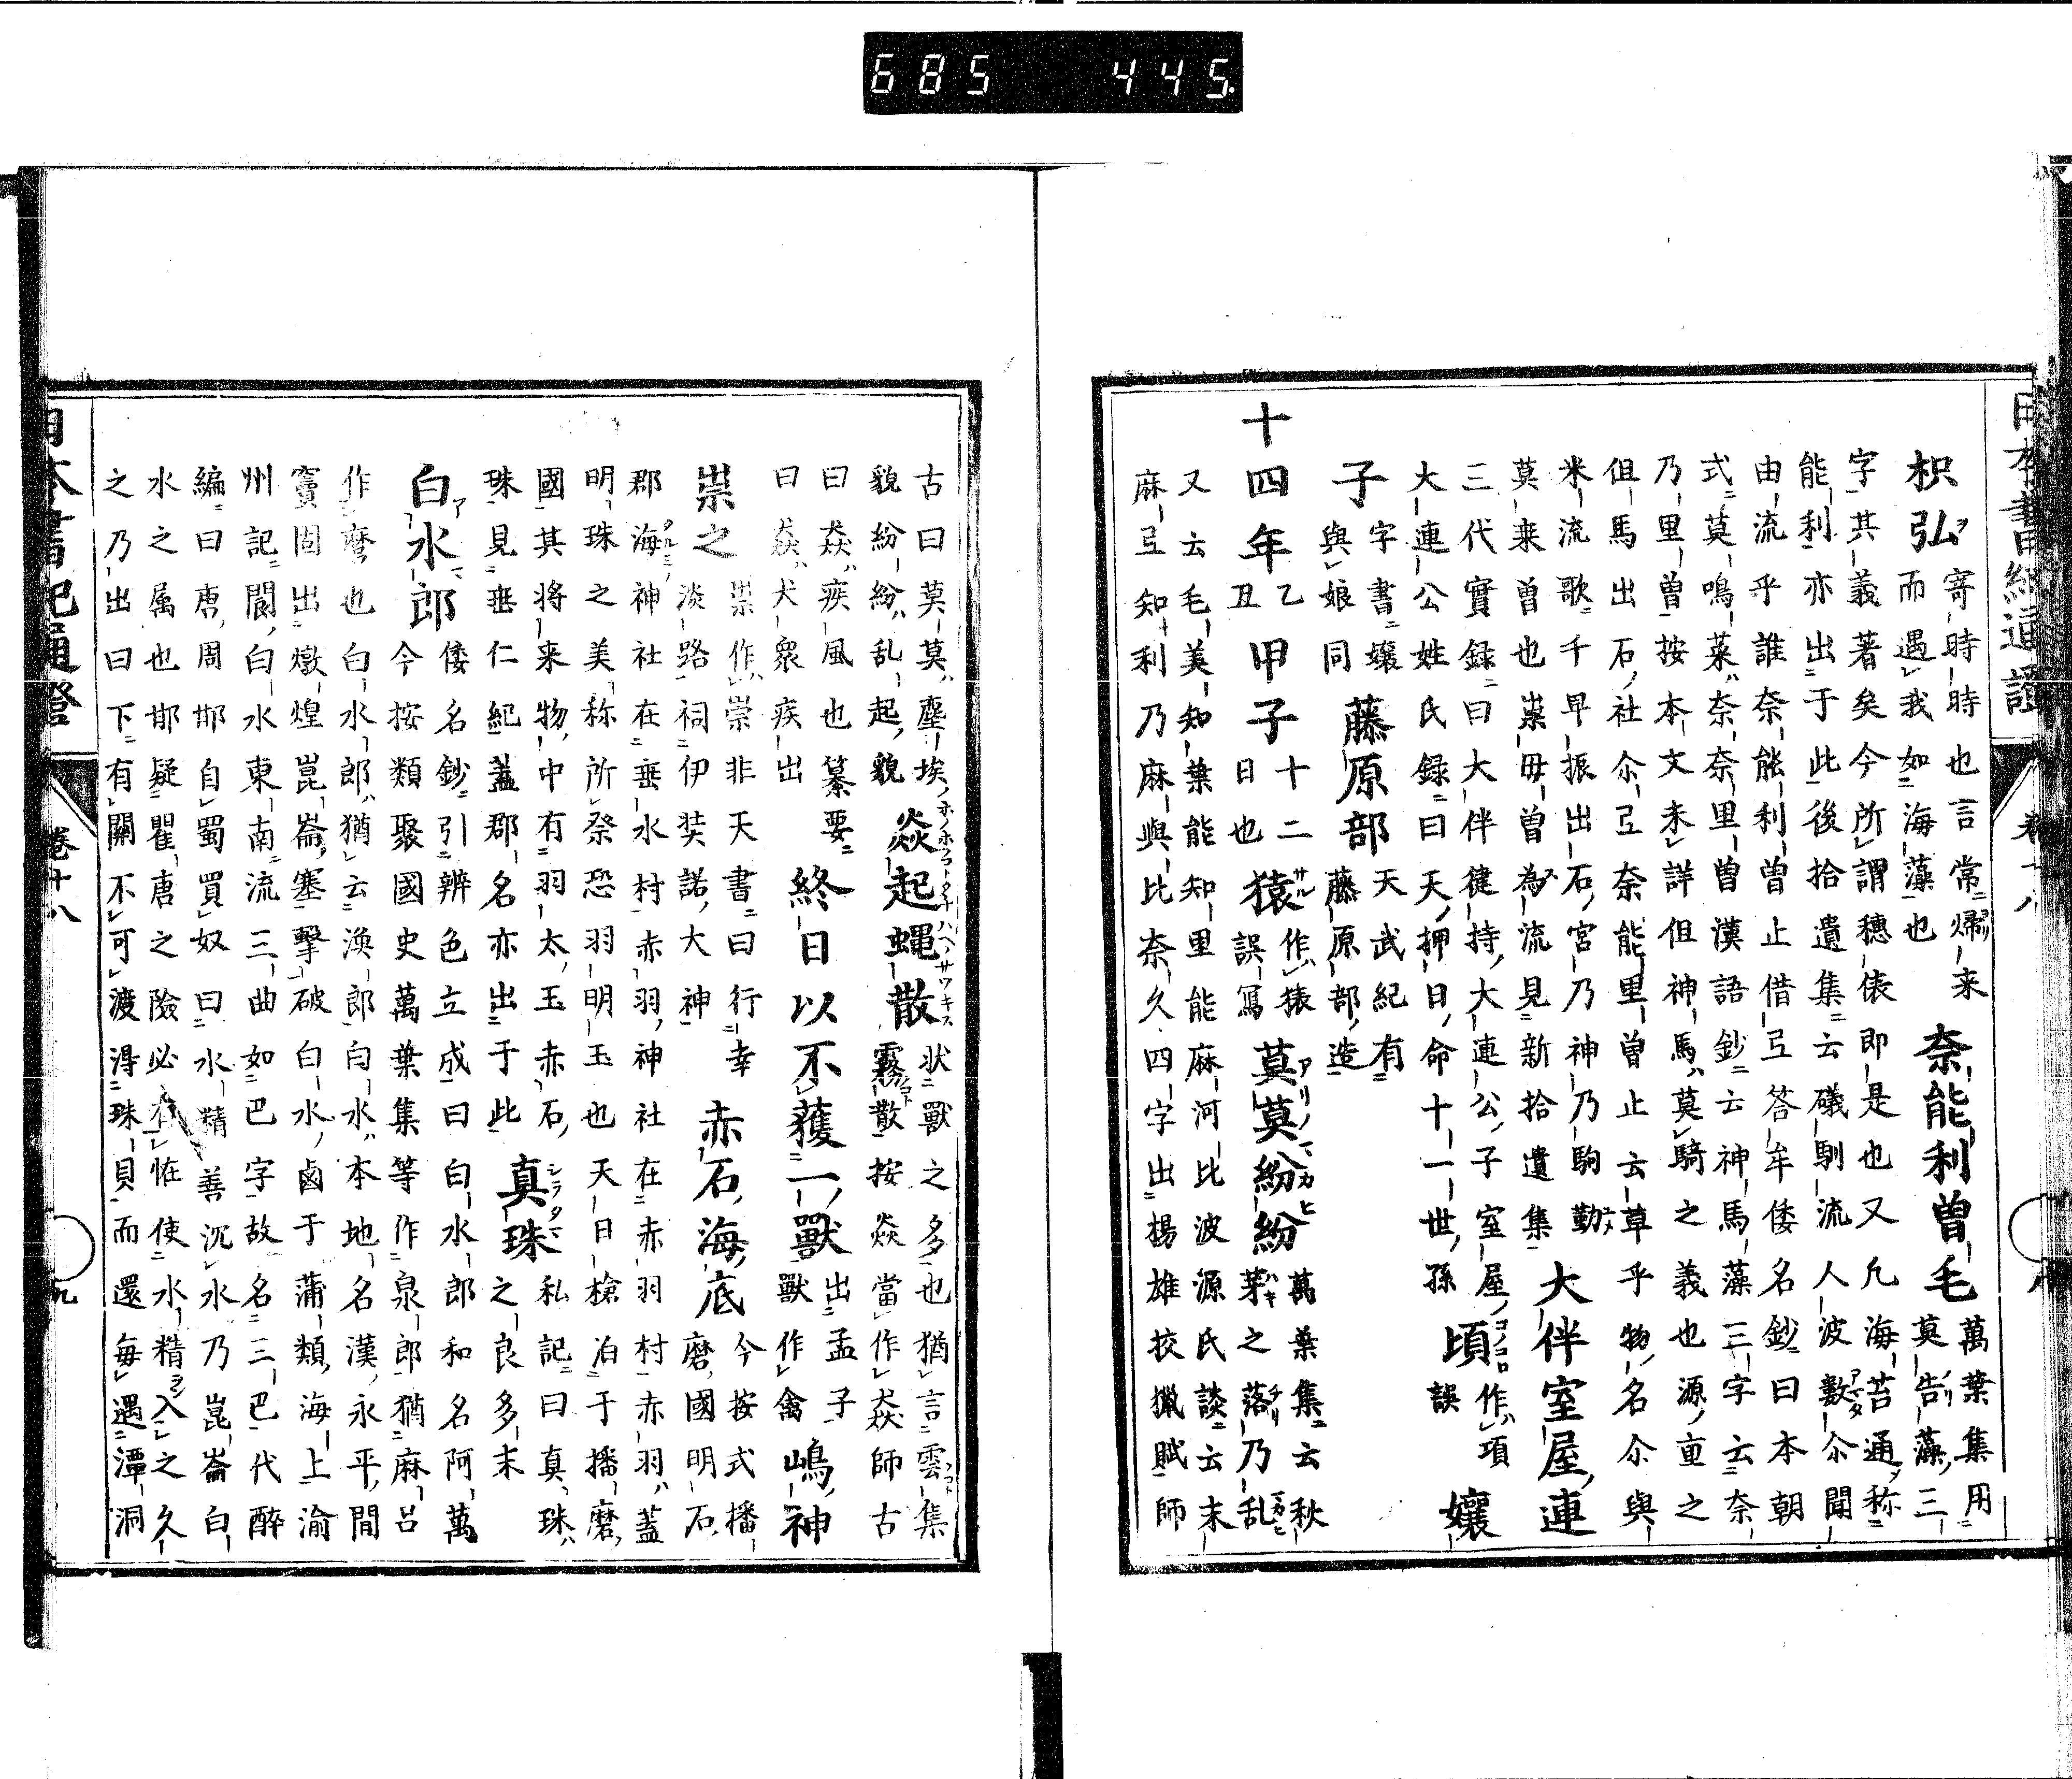 685 445
日本書紀通證 卷十八
枳弘 寄時時也言常帰来
而遇我如海藻也 奈能利曽毛 萬葉集用
莫告藻三
字其義著矣今所謂穗俵即是也又凢海苔通称
能利亦出于此後拾遺集云礒馴流人波数尒聞
由流乎誰奈能利曽止借弖答牟倭名鈔曰本朝
式莫鳴菜奈奈里曽漢語鈔云神馬藻三字云奈
乃里曽按本文未詳但神馬莫騎之義也源重之
但馬出石社尒弖奈能里曽止云草乎物名尒與
米流歌千早振出石宮乃神乃駒勤
莫来曽也祟毋曽為流見新拾遺集 大伴室屋連
三代實録曰大伴健持大連公子室屋
大連公姓氏録曰天押日命十一世孫 頃 作項
誤 孃
子 字書孃
與娘同 藤原部 天武紀有
藤原部造
十四年 乙
丑 甲子 十二
日也 猿 作猿
誤寫 莫莫紛紛 萬葉集云秋
茅之落乃乱
又云毛美知葉能知里能麻河比波源氏談云末
麻弖知利乃麻與比奈久四字出楊雄校獵賦師
古曰莫莫塵埃
貌紛紛乱起貌 焱起蠅散 状獸之多也猶言雲集
霧散按焱當作猋師古
曰猋疾風也纂要
曰猋犬衆疾出 終日以不獲一獸 出孟子
獸作禽 嶋神
祟之 祟作崇非天書曰行幸
淡路祠伊奘諾大神 赤石海底 今按式播
磨國明石
郡海神社在垂水村赤羽神社在赤羽村赤羽蓋
明珠之美称所祭恐羽明玉也天日槍泊于播磨
國其将来物中有羽太玉赤石
珠見垂仁紀蓋郡名亦出于此 真珠 私記曰真珠
之良多末
白水郎 倭名鈔引辨色立成曰白水郎和名阿萬
今按類聚國史萬葉集等作泉郎猶麻呂
作麿也白水郎猶云漁郎白水本地名漢永平間
竇固出燉煌崑崙塞擊破白水鹵于蒲類海上渝
州記閬白水東南流三曲如巴字故名三巴代醉
編曰唐周邯自蜀買奴曰水精善沉水乃崑崙白
水之属也邯疑瞿唐之險必有恠使水精入之久
之乃出曰下有關不可渡得珠貝而還毎遇潭洞
日本書紀通證 卷十八 九